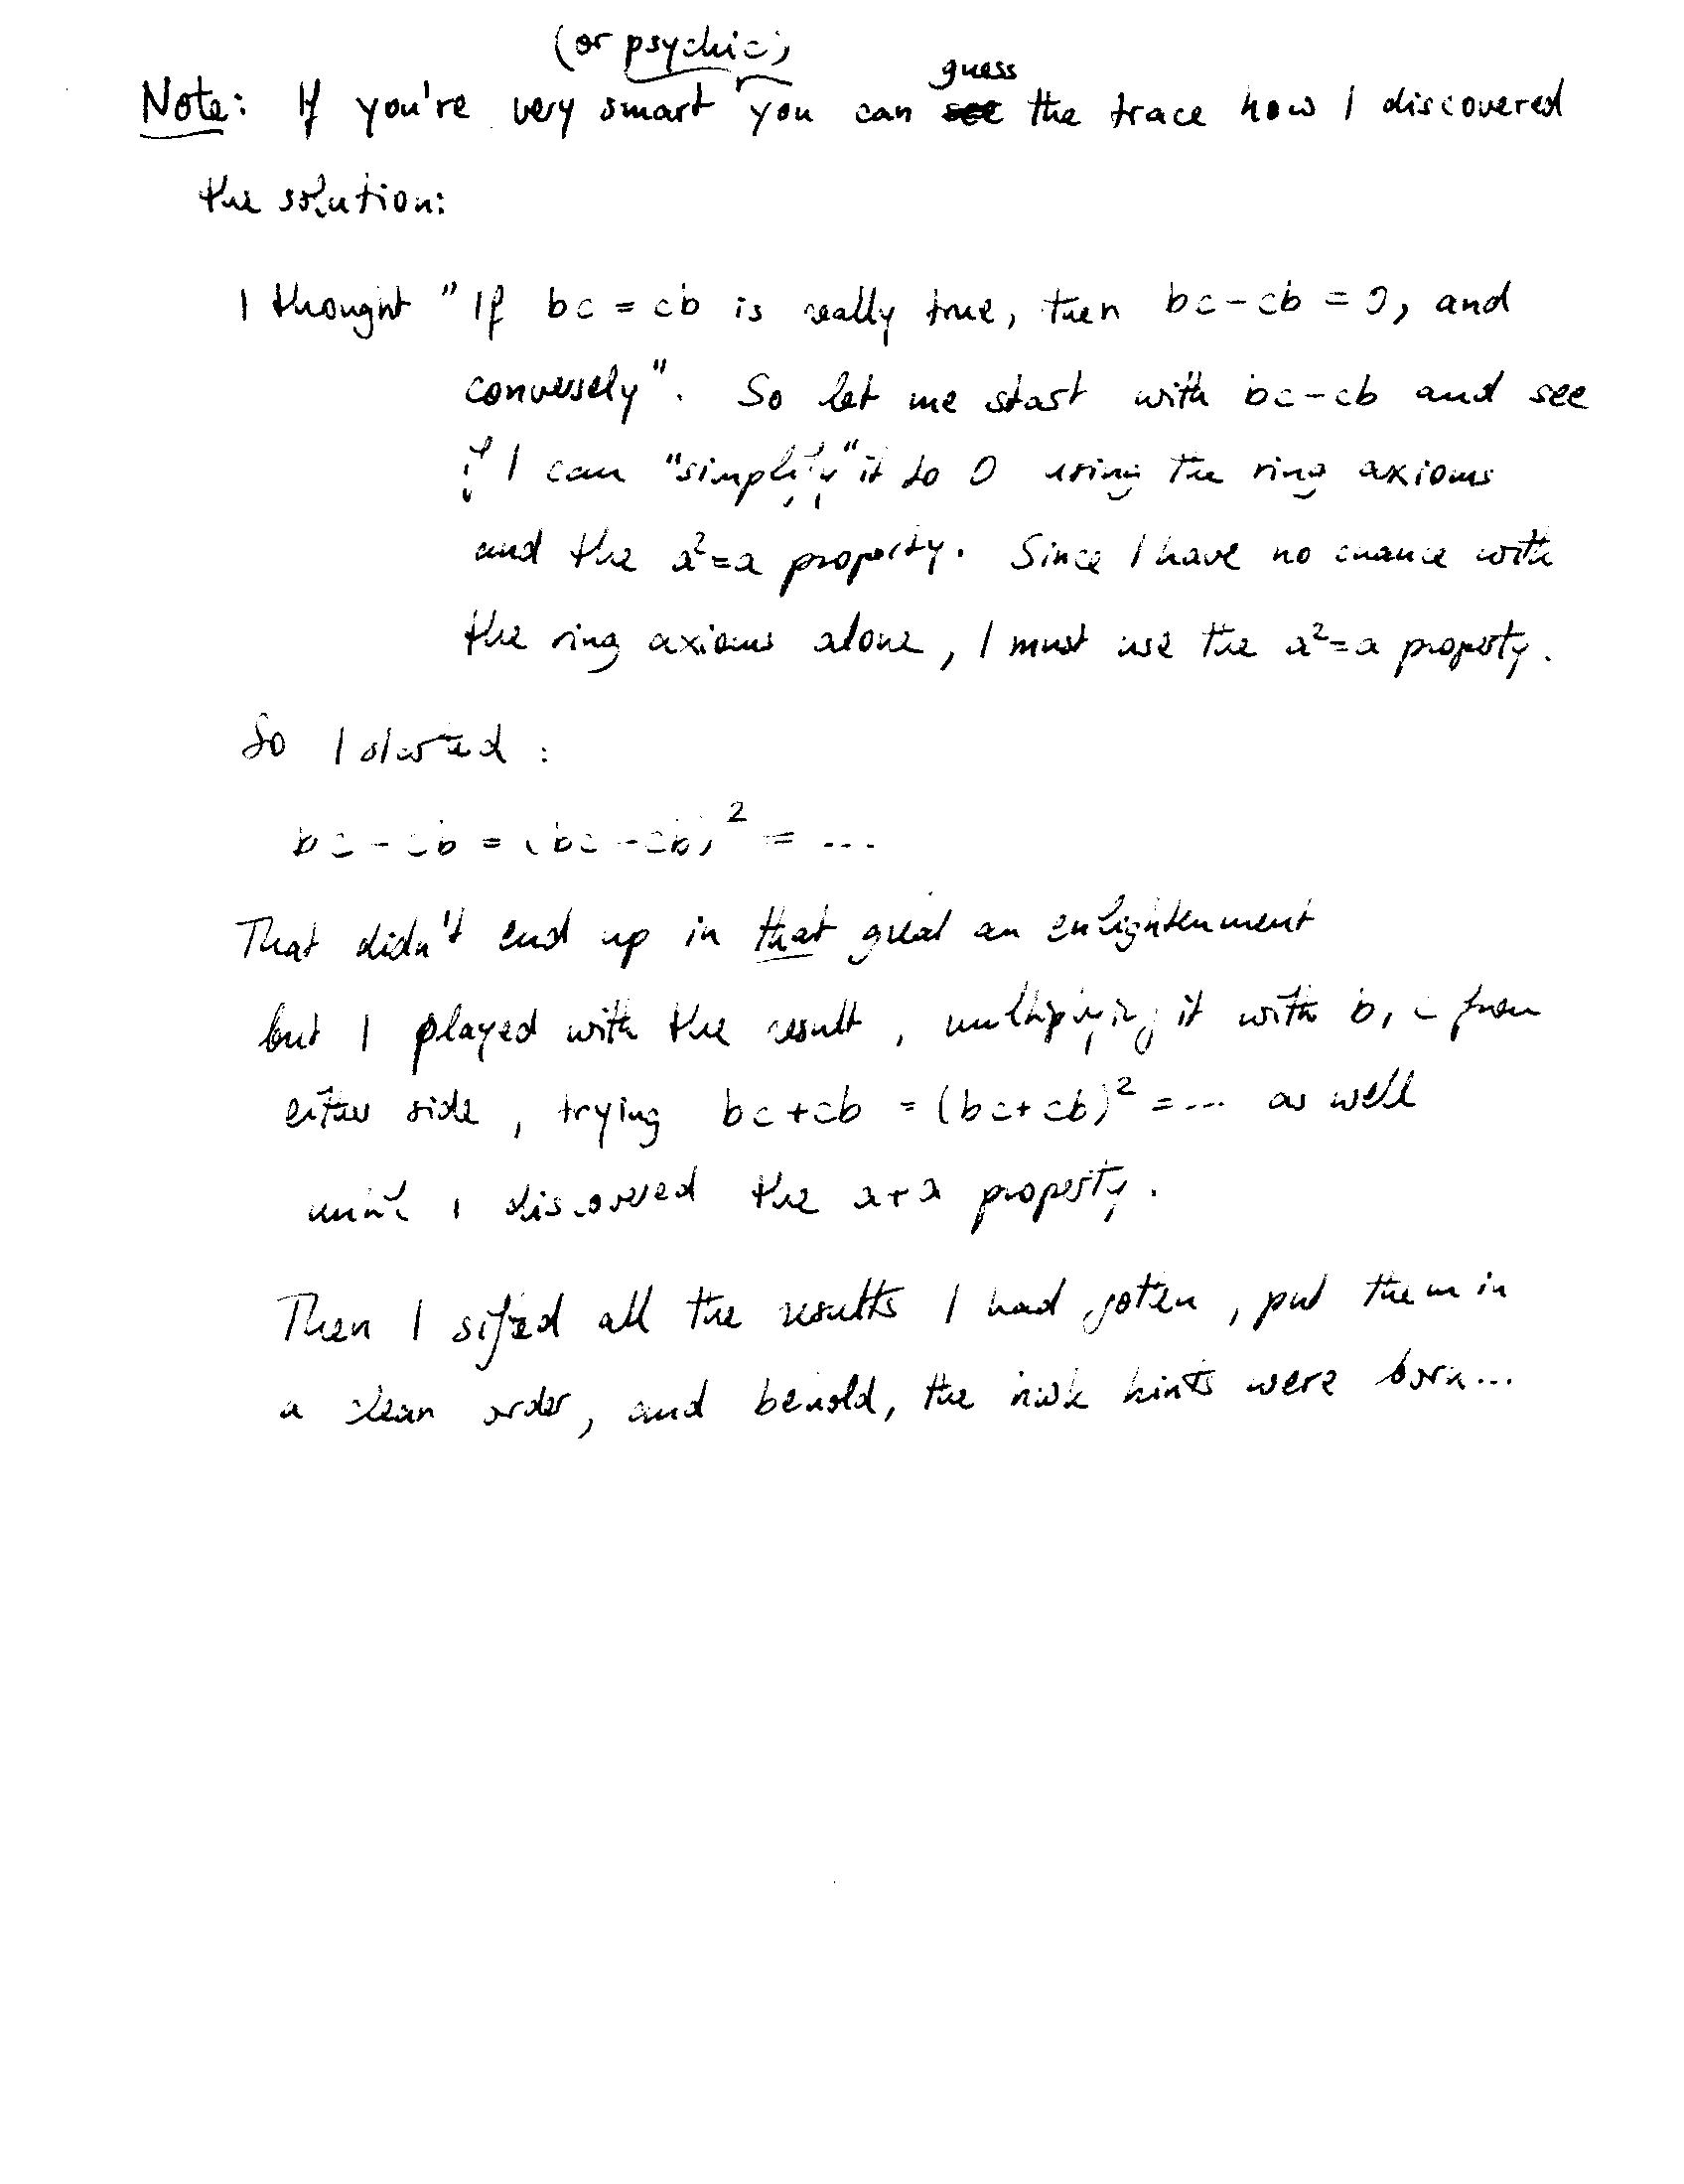 (or psychic)
guess
Note: If you're very smart you can see the trace how I discovered
the solution:
I thought "If bc = cb is really true, then bc-cb = 0, and
conversely". So let me start with bc-cb and see
if I can "simplify" it to 0 using the ring axioms
and the a²=a property. Since I have no chance with
the ring axioms alone, I must use the a²=a property.
So I started :
bc - cb = (bc - cb)² = ...
That didn't end up in that great an enlightenment
but I played with the result, multiplying it with b, c from
either side, trying bc+cb = (bc+cb)² = ... as well
until I discovered the a+a property.
Then I sifted all the results I had gotten, put them in
a clean order, and behold, the hints were born...